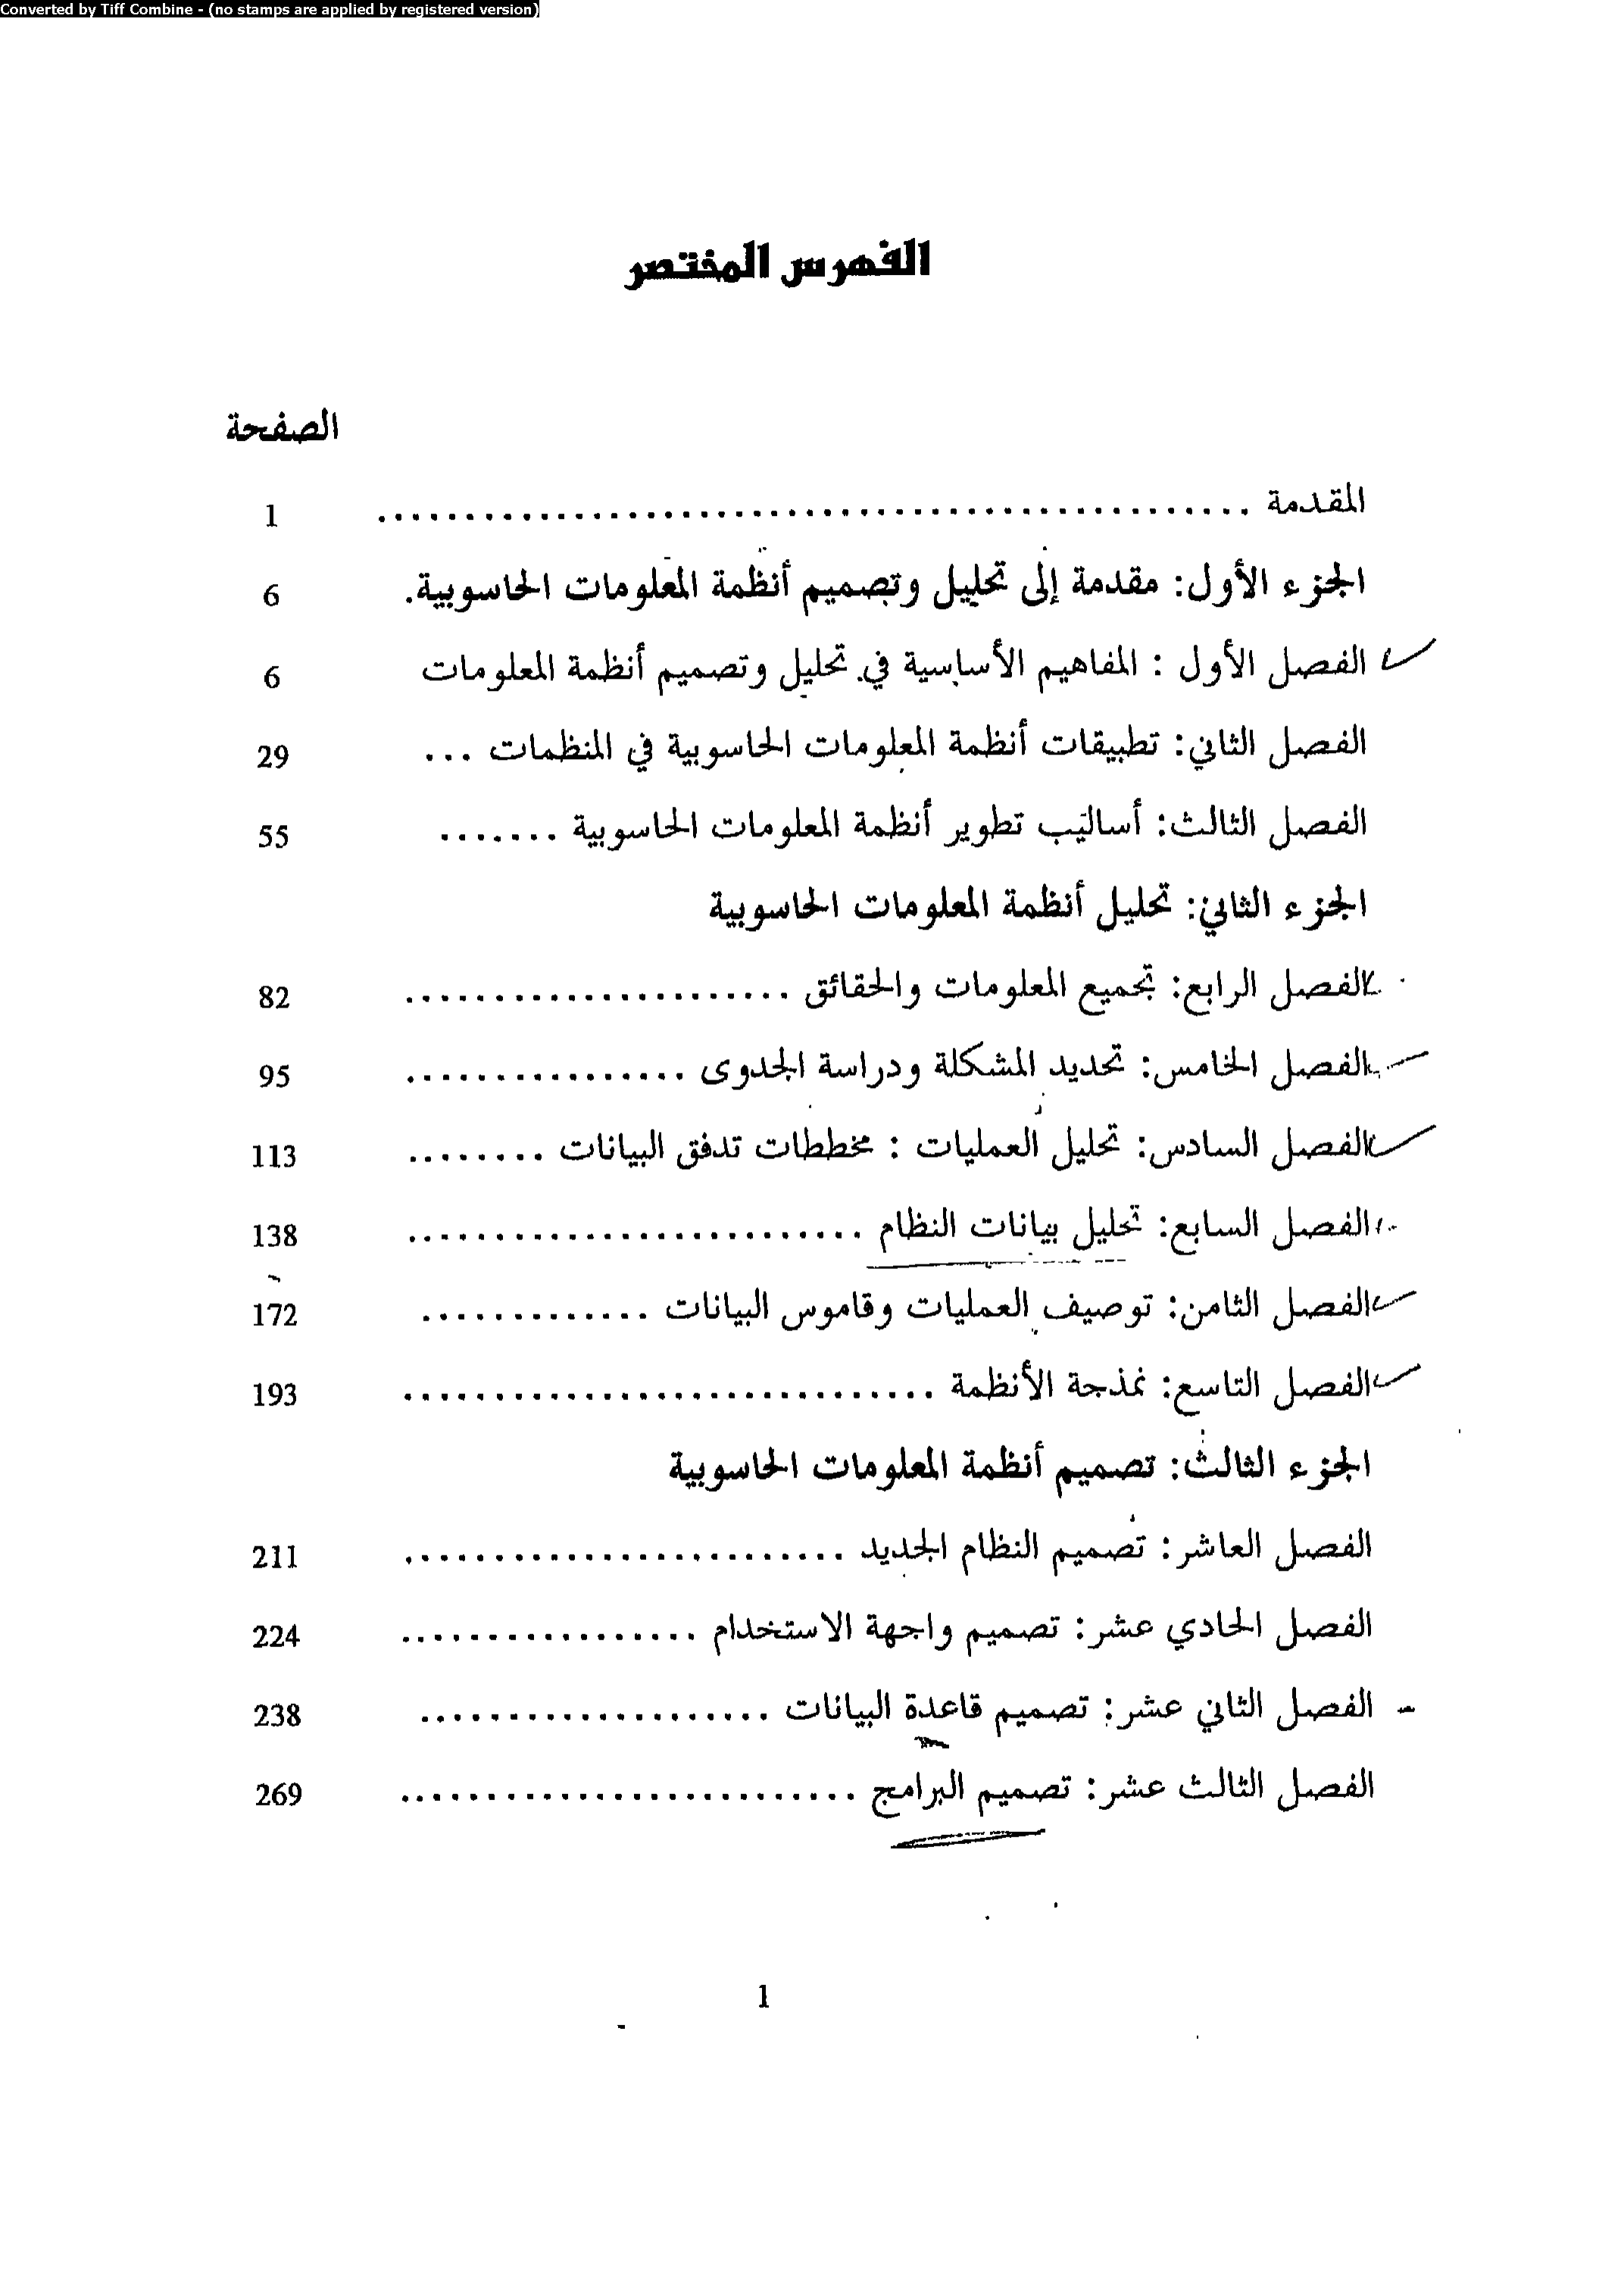 Converted by Tiff Combine - (no stamps are applied by registered version)
الفهرس المختصر
الصفحة
المقدمة .................................................. 1
الجزء الأول: مقدمة إلى تحليل وتصميم أنظمة المعلومات الحاسوبية. 6
الفصل الأول : المفاهيم الأساسية في تحليل وتصميم أنظمة المعلومات 6
الفصل الثاني: تطبيقات أنظمة المعلومات الحاسوبية في المنظمات ... 29
الفصل الثالث: أساليب تطوير أنظمة المعلومات الحاسوبية ....... 55
الجزء الثاني: تحليل أنظمة المعلومات الحاسوبية
الفصل الرابع: تجميع المعلومات والحقائق ....................... 82
الفصل الخامس: تحديد المشكلة ودراسة الجدوى ................. 95
الفصل السادس: تحليل العمليات : مخططات تدفق البيانات ........ 113
الفصل السابع: تحليل بيانات النظام ........................... 138
الفصل الثامن: توصيف العمليات وقاموس البيانات ............. 172
الفصل التاسع: نمذجة الأنظمة ............................... 193
الجزء الثالث: تصميم أنظمة المعلومات الحاسوبية
الفصل العاشر: تصميم النظام الجديد .......................... 211
الفصل الحادي عشر: تصميم واجهة الاستخدام .................. 224
الفصل الثاني عشر: تصميم قاعدة البيانات ..................... 238
الفصل الثالث عشر: تصميم البرامج ........................... 269
1